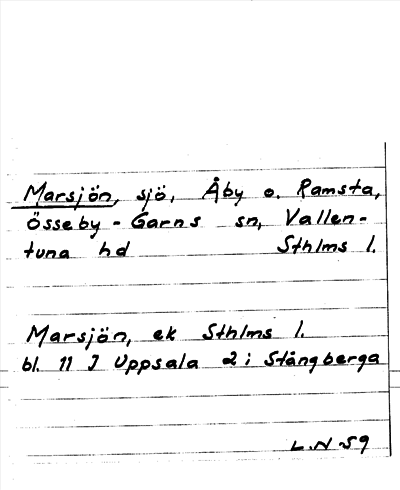 Marsjön, sjö, Åby o. Ramsta,
Össeby-Garns sn, Vallen-
tuna hd Sthlms l.
Marsjön, ek Sthlms l.
bl. 11 J Uppsala 2 i Stångberga
L.N-59